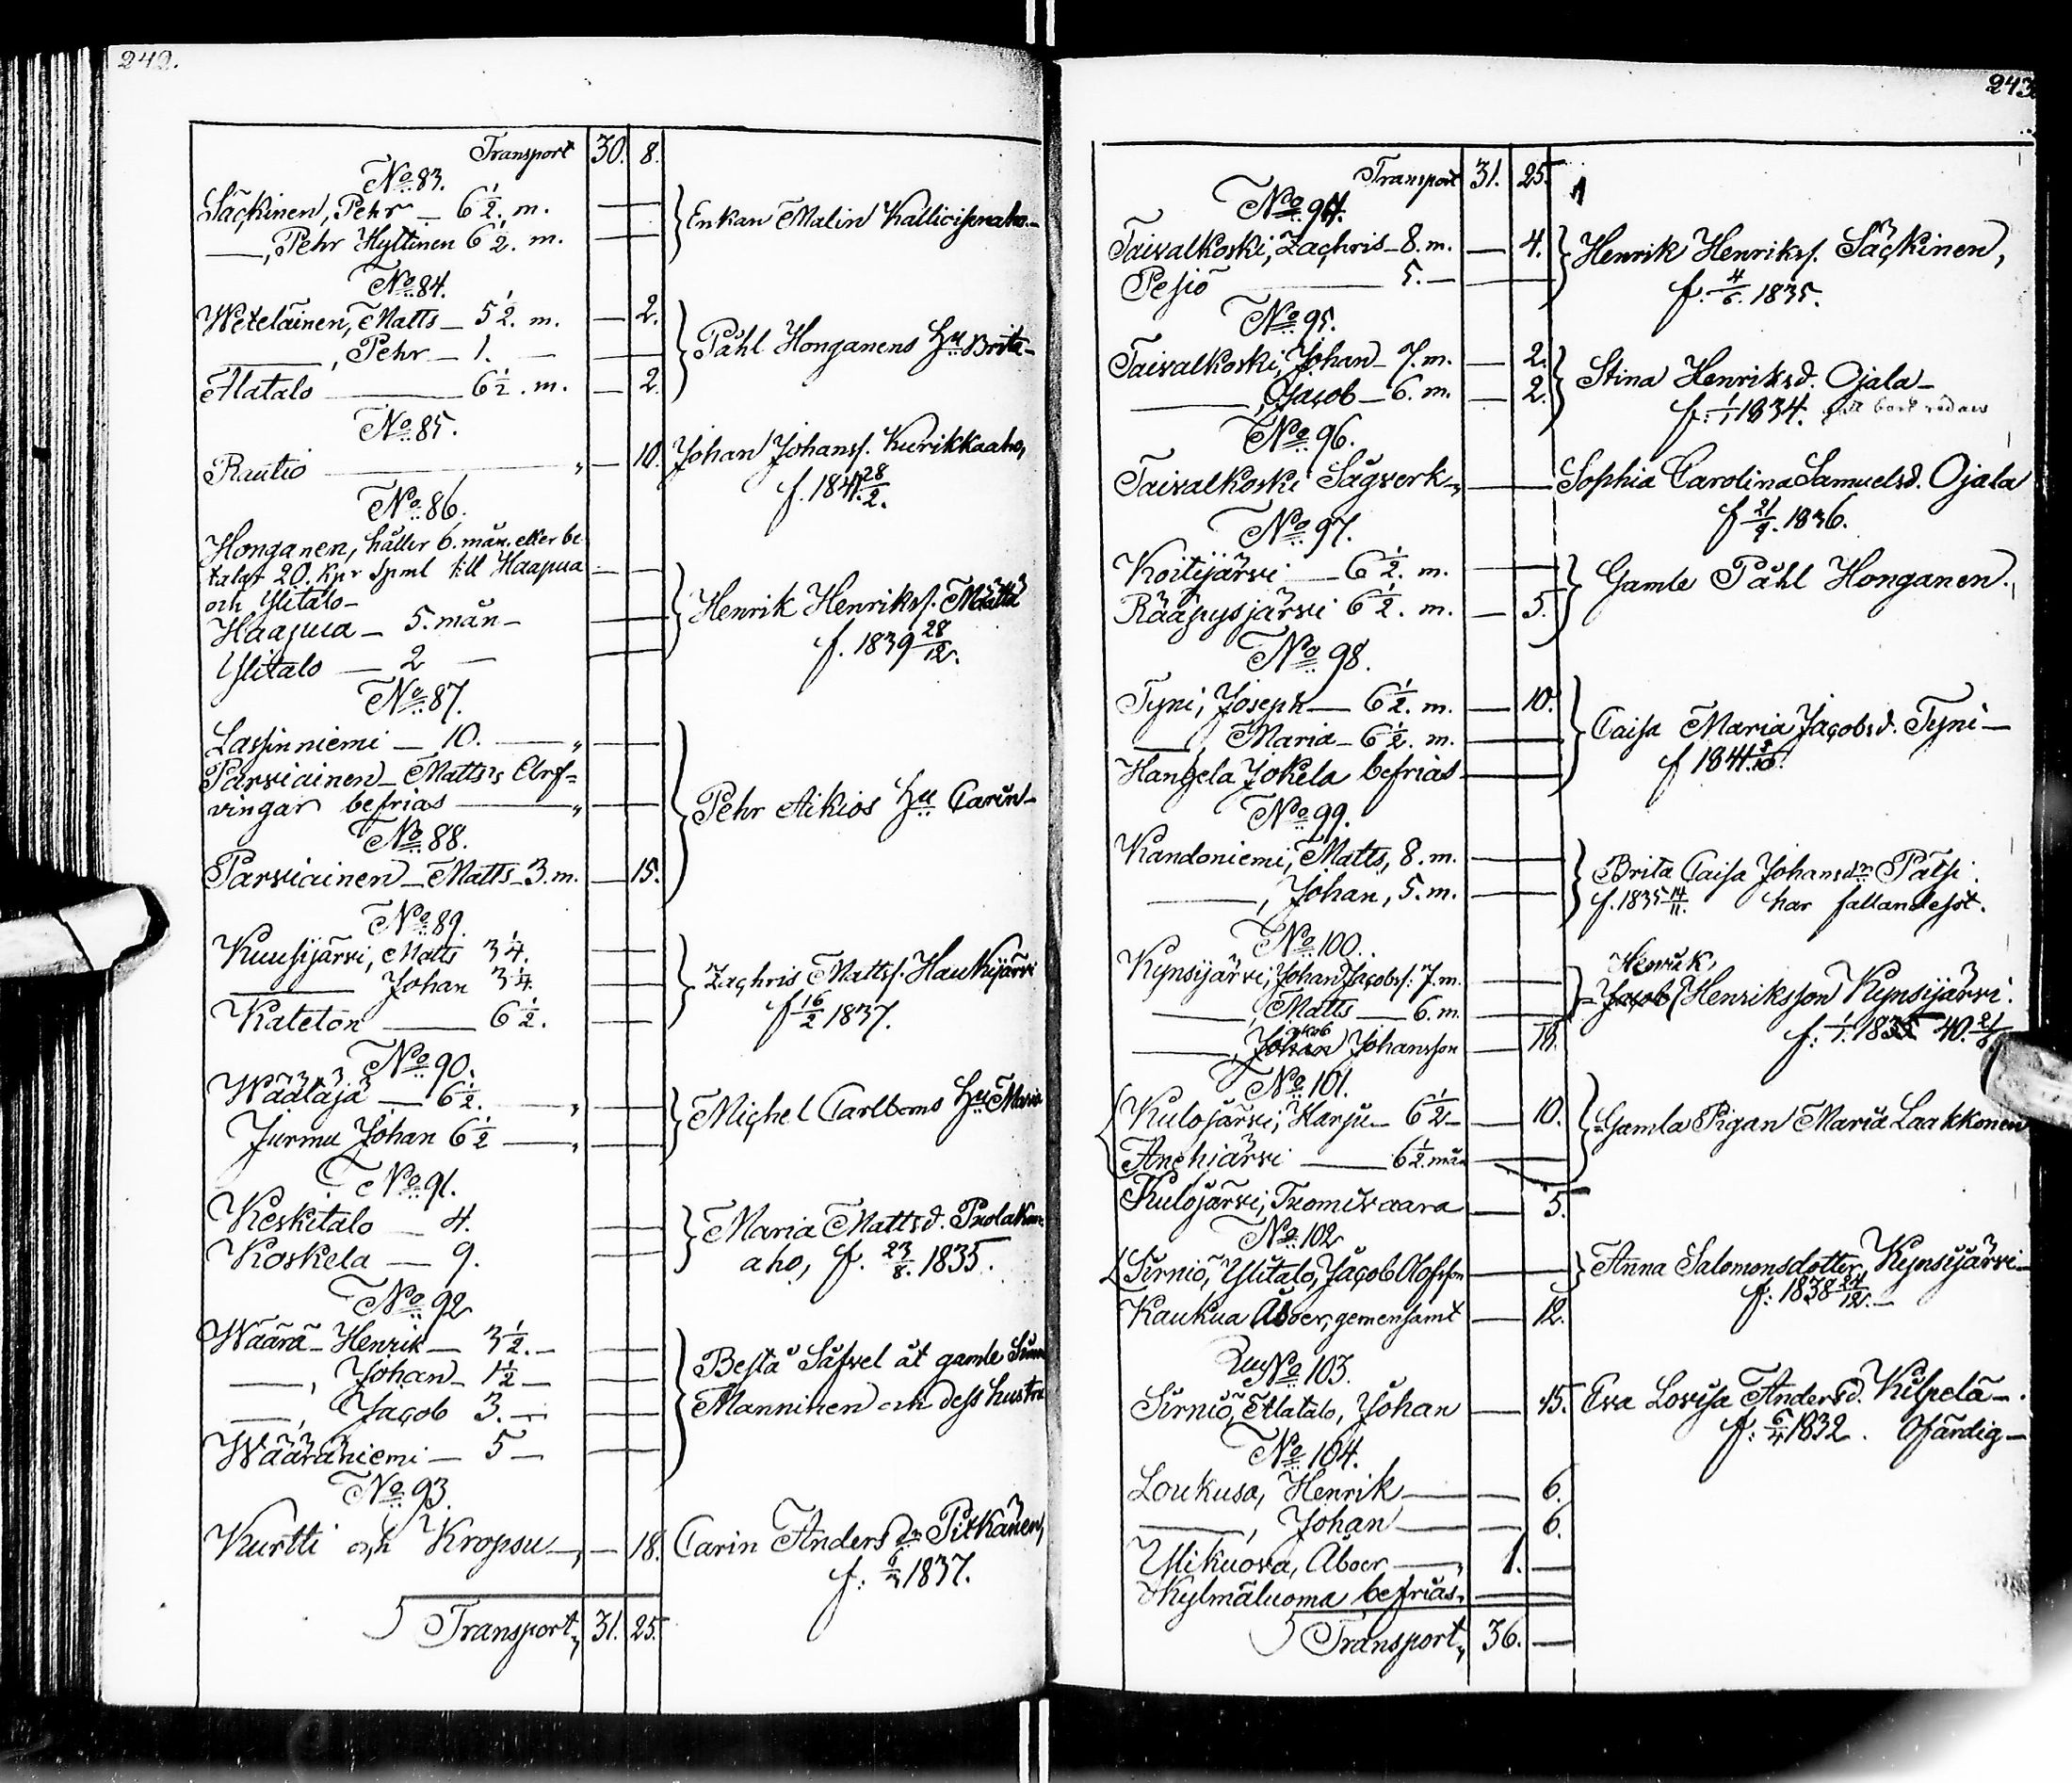 242.
Transport 30. 8.
No 83.
Säckinen, Pehr — 6 1/2. m. —
—, Pehr Hyttinen 6 1/2. m. —
} Enkan Malin
No 84.
Weteläinen, Matts — 5 1/2. m. — 2.
—, Pehr — 1. —
Alatalo — 6 1/2. m. — 2.
} Påhl Honganens Hu Brita —
No 85.
Rautio — „ — 10. Johan Johanss. Kurikkaaho,
f. 1841 28/2.
No 86.
Honganen, håller 6. mån. eller be
talar 20. kpr Spml till Haapua —
och Ylitalo —
Haapua — 5. mån — —
Ylitalo — 2 — —
} Henrik Henrikss. Määttä
f. 1839 28/12.
No 87.
Lassinniemi — 10. — „ —
Parviainen — Matts's Arf=
vingar befrias — „ —
No 88.
Parviainen — Matts — 3. m. — 15.
} Pehr Aikios Hu Carin —
No 89.
Kuusijärvi, Matts 3 1/4. —
— Johan 3 1/4. —
Kateton — 6 1/2. —
} Zachris Mattss. Haukijärvi
f 16/2 1837.
No 90.
Wäätäjä — 6 1/2. — „ —
Jurmu Johan 6 1/2 — „ —
} Michel Carlboms Hu Maria
No 91.
Keskitalo — 4. —
Koskela — 9. —
} Maria Mattsd. Puolakan
aho, f. 23/8. 1835.
No 92
Wäärä — Henrik — 3 1/2. — —
—, Johan — 1 1/2 — —
—, Jacob 3. — —
Wääräniemi — 5 — —
} Bestå Säfvel åt gamle
Manninen och dess hustru
No 93.
Kurtti och Kropsu — „ — 18. Carin Anders Dr Pitkänen,
f: 6/3 1837.
Transport „ 31. 25.
243
Transport 31. 25.
No 94.
Taivalkoski, Zachris — 8. m. — 4.
Pesiö — 5. — —
} Henrik Henrikss. Säckinen,
f. 4/6. 1835.
No 95.
Taivalkoski, Johan — 7. m. — 2.
—, Jacob — 6. m. — 2.
} Stina Henriksd. Ojala —
f: 1/1. 1834.
No 96.
Taivalkoski Sågverk „ — Sophia Carolina Samuelsd. Ojala
f 21/9. 1836.
No 97.
Koitijärvi — 6 1/2. m. —
Rääpysjärvi 6 1/2. m. — 5.
} Gamle Påhl Honganen.
No 98.
Tyni, Joseph — 6 1/2. m. — 10.
—, Maria — 6 1/2. m. —
Hangela Jokela befrias —
} Caisa Maria Jacobsd. Tyni —
f 1841
No 99.
Kandoniemi, Matts, 8. m. —
—, Johan, 5. m. —
} Brita Caisa Johansdr Pätsi.
f. 1835 14/11. har fallandesot.
No 100.
Kynsijärvi, Johan Jacobss: 7. m. —
— Matts — 6. m. —
—, Johan Jakob Johansson — 18.
Henrik,
} Jacob Henriksson Kynsijärvi.
f: 1/1. 1835 40. 21/8.
No 101.
Kulojärvi, Karju — 6 1/2 — — 10.
Anehjärvi — 6 1/2. mån —
} Gamla Pigan Maria Laakkonen
Kulojärvi, Tuomivaara — 5.
No 102
Sirniö, Ylitalo, Jacob Olofsson —
Kaukua Åboer, gemensamt — 12.
} Anna Salomonsdotter Kynsijärvi —
f: 1838 24/12. —
No 103.
Sirniö, Alatalo, Johan — 15. Eva Lovisa Andersd. Kilpelä —.
f: 6/4 1832. Ofärdig —
No 104.
Loukusa, Henrik — — 6.
—, Johan — — 6.
Ylikuova, Åboer — „ 1. —
Kylmäluoma befrias. —
Transport „ 36. —